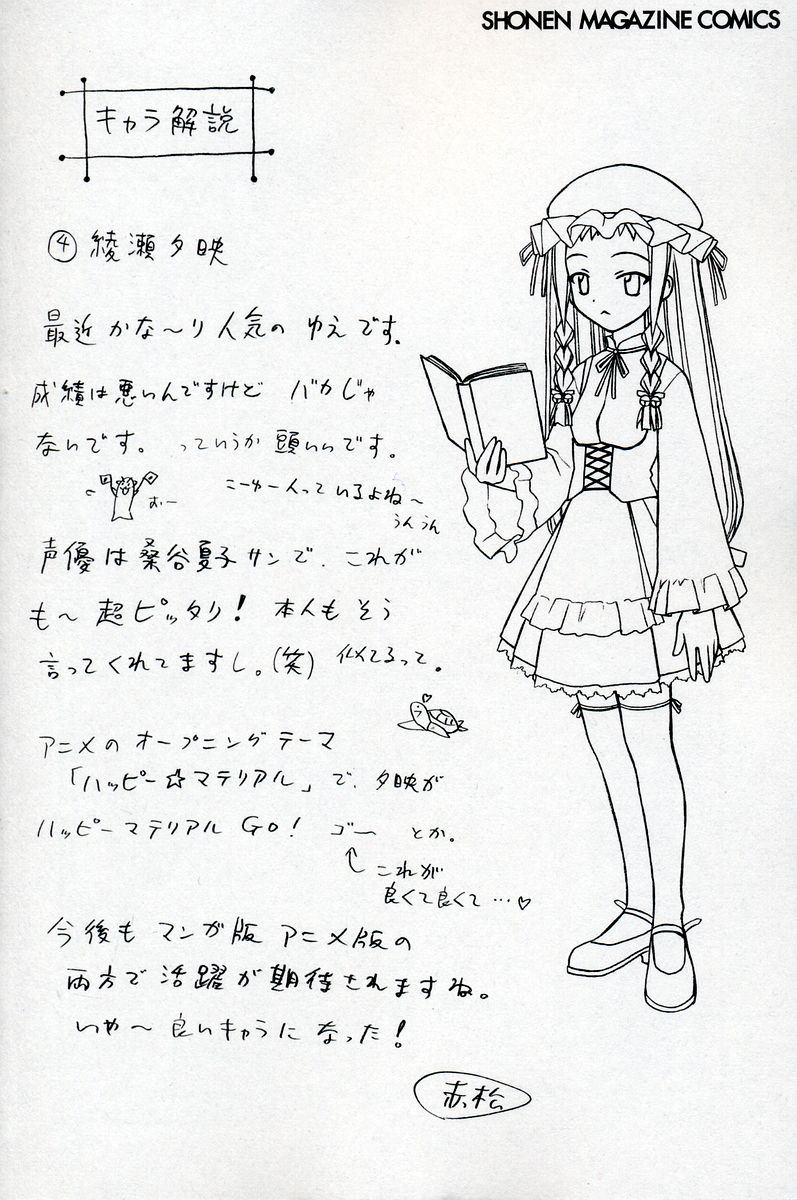 SHONEN MAGAZINE COMICS
キャラ解説
④ 綾瀬夕映
最近 かな〜り 人気の ゆえです。
成績は悪いんですけど バカじゃ
ないです。 っていうか 頭いいです。
おー
こーゆー人っているよね〜
うんうん
声優は 桑谷夏子サンで、これが
も〜 超ピッタリ! 本人も そう
言ってくれてますし。(笑) 似てるって。
アニメの オープニングテーマ
「ハッピー☆マテリアル」で、夕映が
ハッピーマテリアル GO! ゴー とか。
これが
良くて良くて…♡
今後も マンガ版 アニメ版の
両方で 活躍が 期待されますね。
いや〜 良いキャラに なった!
赤松